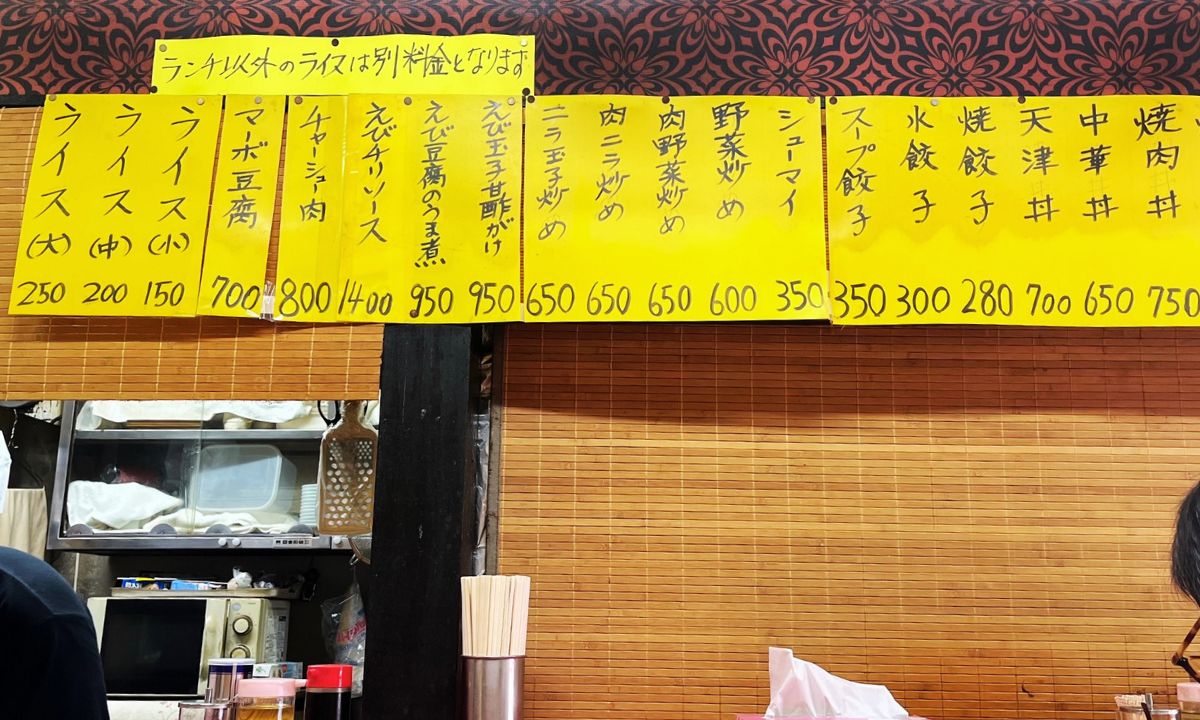 ランチ以外のライスは別料金となります
焼肉丼 750
中華丼 650
天津丼 700
焼餃子 280
水餃子 300
スープ餃子 350
シューマイ 350
野菜炒め 600
肉野菜炒め 650
肉ニラ炒め 650
ニラ玉子炒め 650
えび玉子甘酢がけ 950
えび豆腐のうま煮 950
えびチリソース 1400
チャーシュー肉 800
マーボ豆腐 700
ライス(小) 150
ライス(中) 200
ライス(大) 250